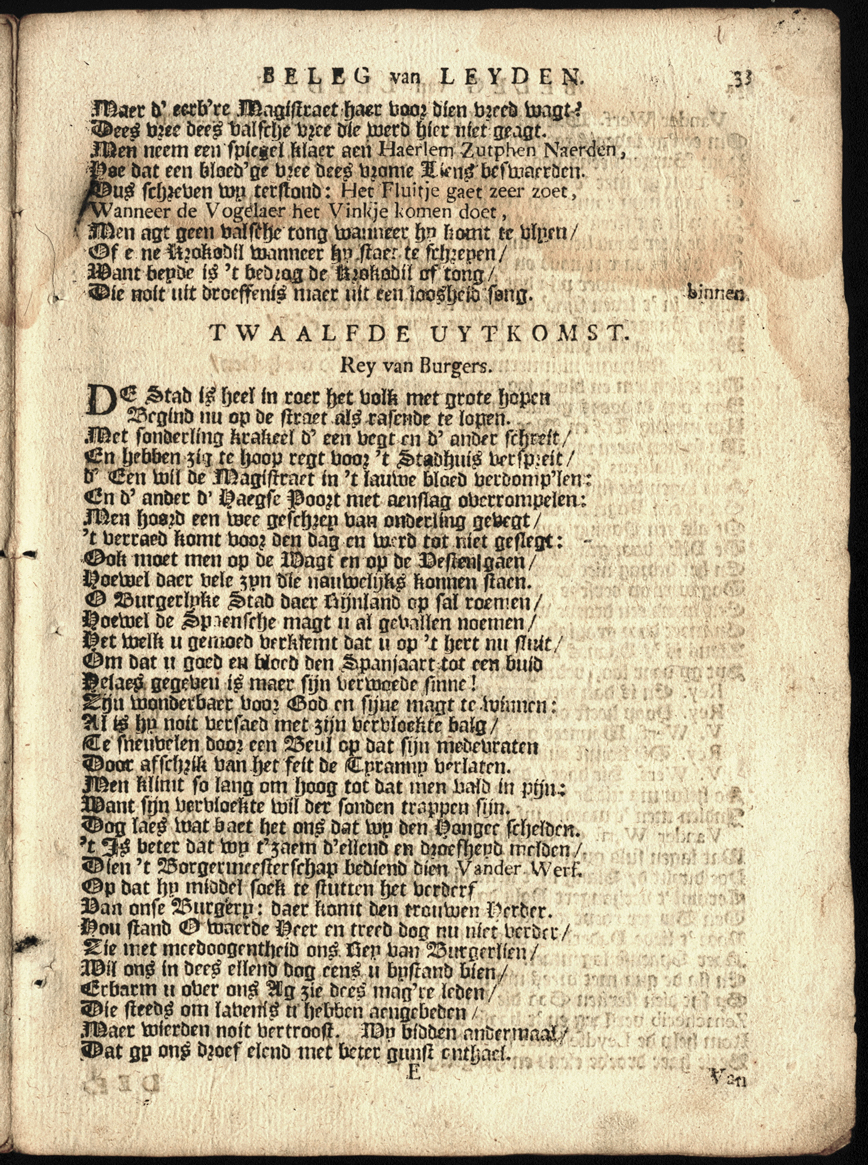 BELEG van LEYDEN. 33
Maer d' eerb're Magistraet haer voor dien vreed wagt?
Dees vree dees valsche vree die werd hier niet geagt.
Men neem een spiegel klaer aen Haerlem Zutphen Naerden,
Hoe dat een bloed'ge vree dees vrome Liens beswaerden.
Dus schreven wy terstond: Het Fluitje gaet zeer zoet,
Wanneer de Vogelaer het Vinkje komen doet,
Men agt geen valsche tong wanneer hy komt te vlyen/
Of e ne Krokodil wanneer hy staet te schreyen/
Want beyde is 't bedrog de Krokodil of tong/
Die noit uit droeffenis maer uit een loosheid song. binnen
TWAALFDE UYTKOMST.
Rey van Burgers.
DE Stad is heel in roer het volk met grote hopen
Begind nu op de straet als rasende te lopen.
Met sonderling krakeel d' een vegt en d' ander schreit/
En hebben zig te hoop regt voor 't Stadhuis verspreit/
d' Een wil de Magistraet in 't lauwe bloed verdomp'len:
En d' ander d' Haegse Poort met aenslag overrompelen:
Men hoord een wee geschrey van onderling gevegt/
't verraed komt voor den dag en werd tot niet geslegt:
Ook moet men op de Wagt en op de Vesten gaen/
Hoewel daer vele zyn die nauwelijks konnen staen.
O Burgerlyke Stad daer Rijnland op sal roemen/
Hoewel de Spaensche magt u al gevallen noemen/
Het welk u gemoed verklemt dat u op 't hert nu sluit/
Om dat u goed en bloed den Spanjaart tot een buid
Helaes gegeven is maer sijn verwoede sinne!
Zijn wonderbaer voor God en sijne magt te winnen:
Al is hy noit versaed met zijn vervloekte balg/
Te sneuvelen door een Beul op dat sijn medevraten
Door afschrik van het feit de Tyranny verlaten.
Men klimt so lang om hoog tot dat men vald in pijn:
Want sijn vervloekte wil der sonden trappen sijn.
Dog laes wat baet het ons dat wy den Honger schelden.
't Is beter dat wy t'zaem d'ellend en droefheyd melden/
Dien 't Borgermeesterschap bediend dien Vander Werf.
Op dat hy middel soek te stutten het verderf
Van onse Burgery: daer komt den trouwen Herder.
Hou stand O waerde Heer en treed dog nu niet verder/
Zie met meedoogentheid ons Rey van Burgerlien/
Wil ons in dees ellend dog eens u bystand bien/
Erbarm u over ons Ag zie dees mag're leden/
Die steeds om lavenis u hebben aengebeden/
Maer wierden noit vertroost. Wy bidden andermaal/
Dat gy ons droef elend met beter gunst onthael.
E Van